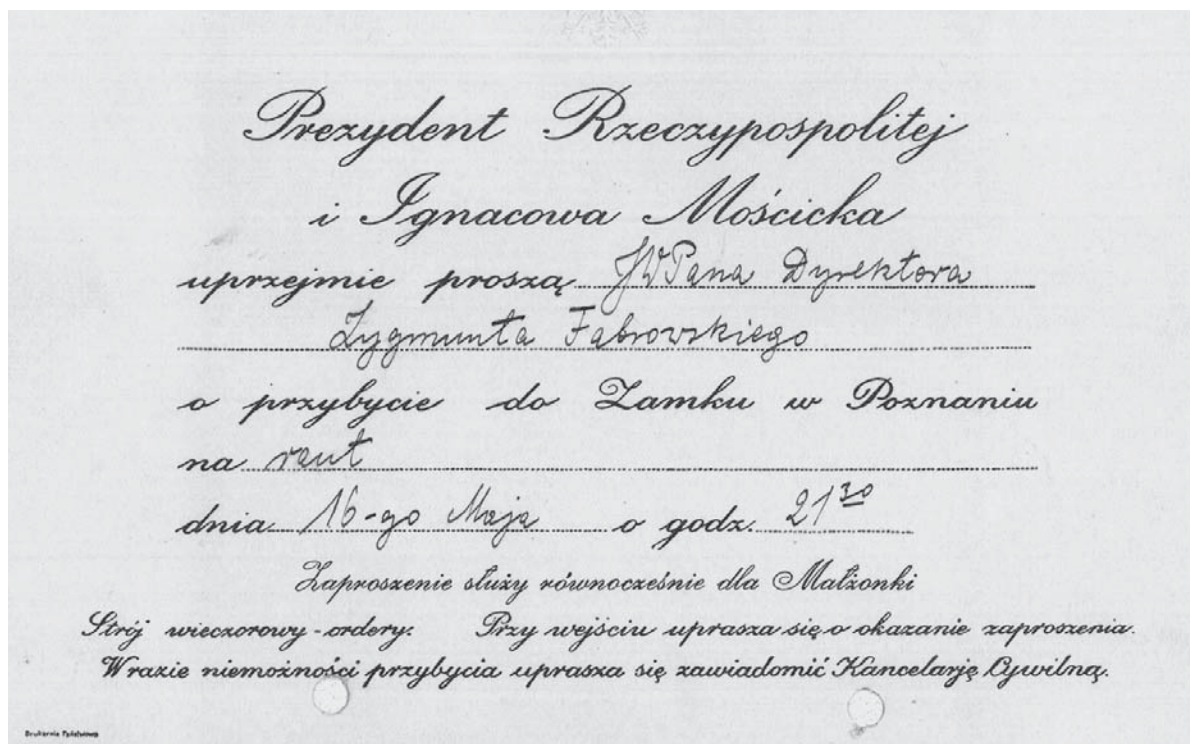 Prezydent Rzeczypospolitej
i Ignacowa Mościcka
uprzejmie proszą JWPana Dyrektora
Zygmunta Fąbrowskiego
o przybycie do Zamku w Poznaniu
na raut
dnia 16-go Maja o godz. 21³⁰
Zaproszenie służy równocześnie dla Małżonki
Strój wieczorowy - ordery. Przy wejściu uprasza się o okazanie zaproszenia.
W razie niemożności przybycia uprasza się zawiadomić Kancelarję Cywilną.
Drukarnia Państwowa